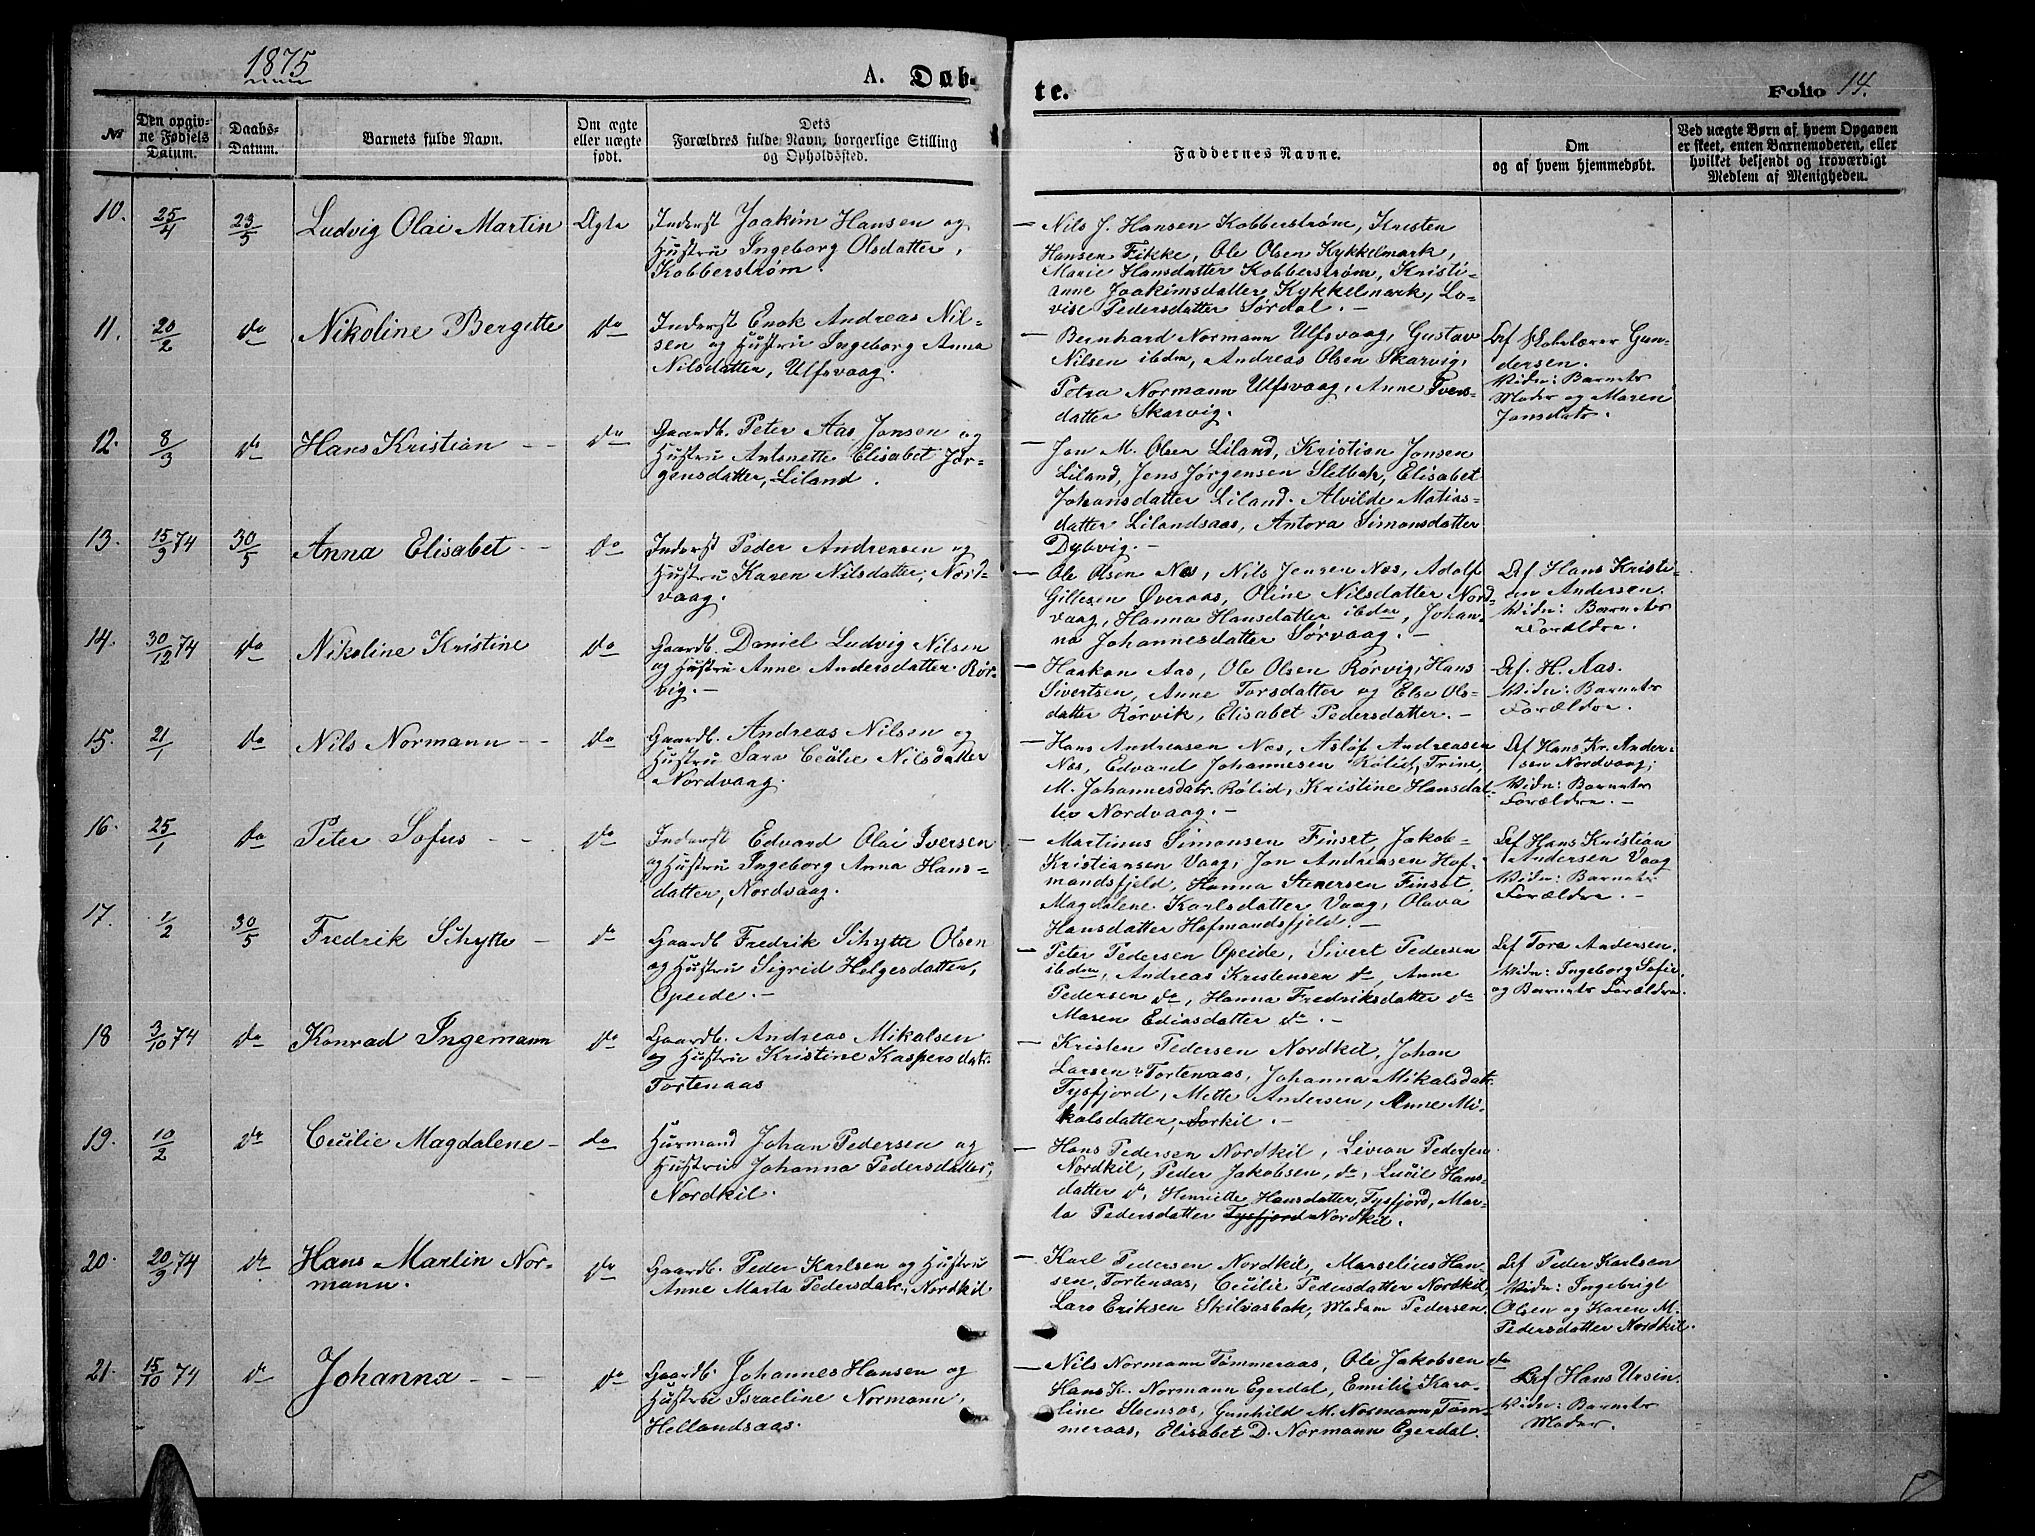 1875
A. Døb-
te.
Folio 14.
№
Den opgiv-
ne Fødsels
Datum.
Daabs-
Datum.
Barnets fulde Navn.
Om ægte
eller uægte
født.
Dets
Forældres fulde Navn, borgerlige Stilling
og Opholdssted.
Faddernes Navne.
Om
og af hvem hjemmedøbt.
Ved uægte Børn af hvem Opgaven
er skeet, enten Barnemoderen, eller
hvilket bekjendt og troværdigt
Medlem af Menigheden.
10.
25/4
23/5
Ludvig Olai Martin
Ægte
Inderst Joakim Hansen og
Hustru Ingeborg Olsdatter,
Kobberstrøm.
— Nils J. Hansen Kobberstrøm, Kristen
Hansen Fikke, Ole Olsen Kykkelmark,
Marie Hansdatter Kobberstrøm, Kristi-
anne Joakimsdatter Kykkelmark, Lo-
vise Pedersdatter Sørdal. —
11.
20/2
do
Nikoline Bergitte
do
Inderst Enok Andreas Nil-
sen og Hustru Ingeborg Anna
Nilsdatter, Ulfsvaag.
— Bernhard Normann Ulfsvaag, Gustav
Nilsen ibdm, Andreas Olsen Skarvig,
Petra Normann Ulfsvaag, Anne Ivers-
datter Skarvig.
Af Skolelærer Gun-
dersen.
Vidn: Barnets
Moder og Maren
Jonsdatr.
12.
8/3
do
Hans Kristian — —
do
Gaardb. Peter Aas Jonsen og
Hustru Antonette Elisabet Jør-
gensdatter, Liland.
— Jon M. Olsen Liland, Kristian Jonsen
Liland, Jens Jørgensen Sletbak, Elisabet
Johansdatter Liland. Alvilde Matias-
datter Lilandsaas, Antora Simonsdatter
Dybvig. —
13.
15/9 74
30/5
Anna Elisabet — —
do
Inderst Peder Andreasen og
Hustru Karen Nilsdatter, Nord-
vaag.
— Ole Olsen Nes, Nils Jensen Nes, Adolf
Gillesen Øveraas, Oline Nilsdatter Nord-
vaag, Hanna Hansdatter ibdm, Johan-
na Johannesdatter Sørvaag. —
Af Hans Kristi-
an Andersen.
Vidn: Barnets
Forældre.
14.
30/12 74
do
Nikoline Kristine
do
Gaardb. Daniel Ludvig Nilsen
og Hustru Anne Andersdatter Rør-
vig. —
— Haakon Aas, Ole Olsen Rørvig, Hans
Sivertsen, Anne Torsdatter og Else Ols-
datter Rørvik, Elisabet Pedersdatter. —
Af. H. Aas.
Vidn: Barnets
Forældre.
15.
21/1
do
Nils Normann — —
do
Gaardb. Andreas Nilsen og
Hustru Sara Cecilie Nilsdatter
Nordvaag.
— Hans Andreasen Nes, Asløf Andreasen
Nes, Edvard Johannesen Rølid, Trine,
M. Johannesdatr. Rølid, Kristine Hansdat-
ter Nordvaag. —
Af Hans Kr. Ander-
sen Nordvaag;
Vidn: Barnets
Forældre. —
16.
25/1
do
Peter Sofus — —
do
Inderst Edvard Olai Iversen
og Hustru Ingeborg Anna Hans-
datter, Nordvaag.
— Martinus Simonsen Finset, Jakob-
Kristiansen Vaag, Jon Andreasen Hof-
mandsfjeld, Hanna Stenersen Finset,
Magdalene Karlsdatter Vaag, Olava
Hansdatter Hofmandsfjeld. —
Af Hans Kristian
Andersen Vaag
Vidn: Barnets
Forældre. —
17.
1/2
30/5
Fredrik Schytte —
do
Gaardb Fredrik Schytte Olsen
og Hustru Sigrid Helgesdatter,
Opeide. —
— Peter Pedersen Opeide, Sivert Pedersen
ibdm, Andreas Kristensen do, Anne
Pedersen do, Hanna Fredriksdatter do
Maren Ediasdatter do. —
Af Tora Andersen.
Vidn: Ingeborg Sofie
og Barnets Forældre.
18
3/10 74
do
Konrad Ingemann
do
Gaardb. Andreas Mikalsen
og Hustru Kristine Kaspersdatr.
Tortenaas
— Kristen Pedersen Nordkil, Johan
Larsen Tortenaas, Johanna Mikalsdatr.
Tysfjord, Mette Andersen, Anne Mi-
kalsdatter, Sorkil. —
19.
10/2
do
Cecilie Magdalene —
do
Husmand Johan Pedersen og
Hustru Johanna Pedersdatter,
Nordkil.
— Hans Pedersen Nordkil, Pedersen
Nordkil, Peder Jakobsen, do, Hans-
datter do, Henriette Hansdatter, Tysfjord, Mar-
ta Pedersdatter Tysfjord Nordkil.
20.
20/9 74
do
Hans Martin Nor-
mann.
do
Gaardb. Peder Karlsen og Hustru
Anne Marta Pedersdatr., Nordkil
— Karl Pedersen Nordkil, Marselius Han-
sen, Tortenaas, Cecilie Pedersdatter Nordkil,
Lars Eriksen Skilvasbak, Madam Pedersen.
Af Peder Karlsen
Vidn: Ingebrigt
Olsen og Karen M.
Pedersdatter Nordkil.
21.
15/10 74
do
Johanna — — —
do
Gaardb. Johannes Hansen og
Hustru Israeline Normann,
Hellandsaas.
— Nils Normann Tømmeraas, Ole Jakobsen do
Hans K. Normann Egerdal, Emilie Karo-
line Stensøs, Gunhild M. Normann, Tøm-
meraas, Elisabet D. Normann Egerdal.
Af Hans Ursin.
Vidn: Barnets
Moder.